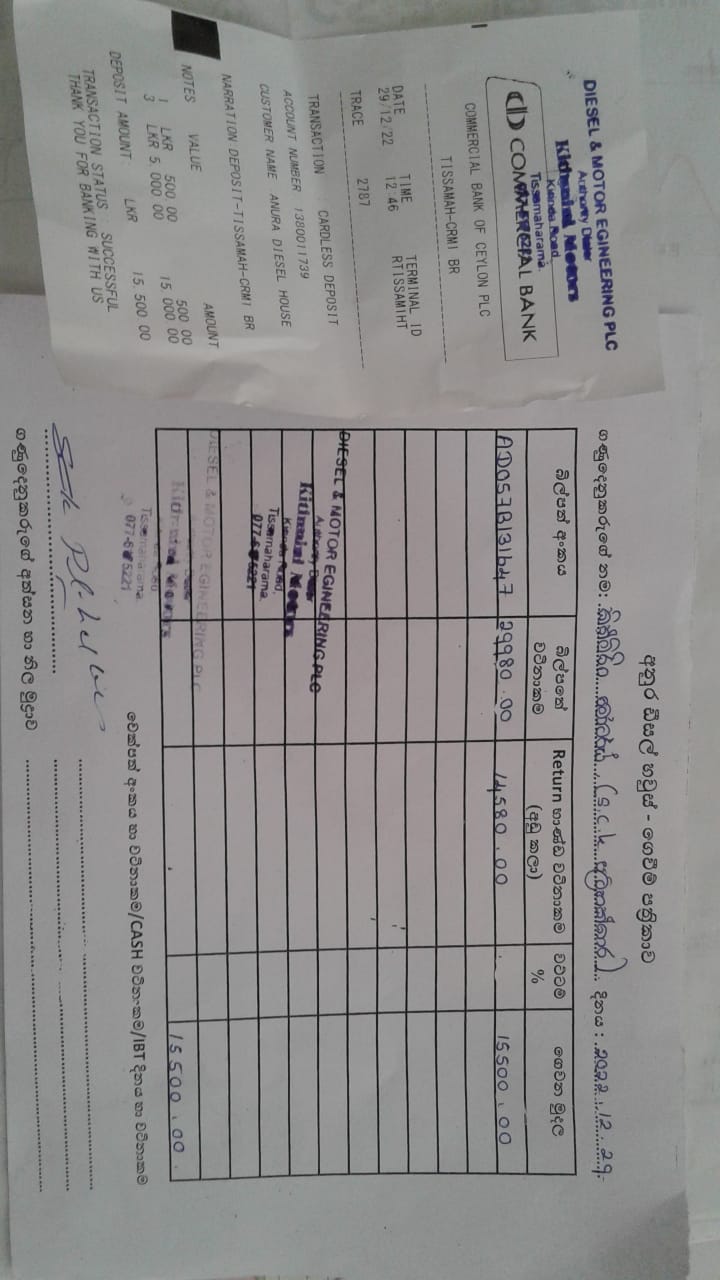 DIESEL & MOTOR EGINEERING PLC
Authority Dealer
Kithmini Motors
Kirinda Road,
Tissamaharama.
COMMERCIAL BANK
COMMERCIAL BANK OF CEYLON PLC
TISSAMAH-CRM1 BR
DATE TIME TERMINAL ID
29/12/22 12:46 RTISSAM1HT
TRACE 2787
TRANSACTION CARDLESS DEPOSIT
ACCOUNT NUMBER 1380011739
CUSTOMER NAME ANURA DIESEL HOUSE
NARRATION DEPOSIT-TISSAMAH-CRM1 BR
NOTES VALUE AMOUNT
1 LKR 500 00 500 00
3 LKR 5 000 00 15 000 00
DEPOSIT AMOUNT LKR 15 500 00
TRANSACTION STATUS SUCCESSFUL
THANK YOU FOR BANKING WITH US
අනුර ඩීසල් හවුස් - ගෙවීම් පත්‍රිකාව
ගණුදෙනුකරුගේ නම: (S.C.K දිනය: 2022.12.29
බිල්පත් අංකය බිල්පතේ වටිනාකම Return භාණ්ඩ වටිනාකම (අඩු කලා) වට්ටම් % ගෙවන මුදල
AD057B131647 29980.00 14580.00 15500.00
DIESEL & MOTOR EGINEERING PLC
Authority Dealer
Kithmini Motors
Kirinda Road,
Tissamaharama.
DIESEL & MOTOR EGINEERING PLC
Tissamaharama.
15500.00
චෙක්පත් අංකය හා වටිනාකම/CASH වටිනාකම/IBT දිනය හා වටිනාකම
ගණුදෙනුකරුගේ අත්සන හා නිල මුද්‍රාව